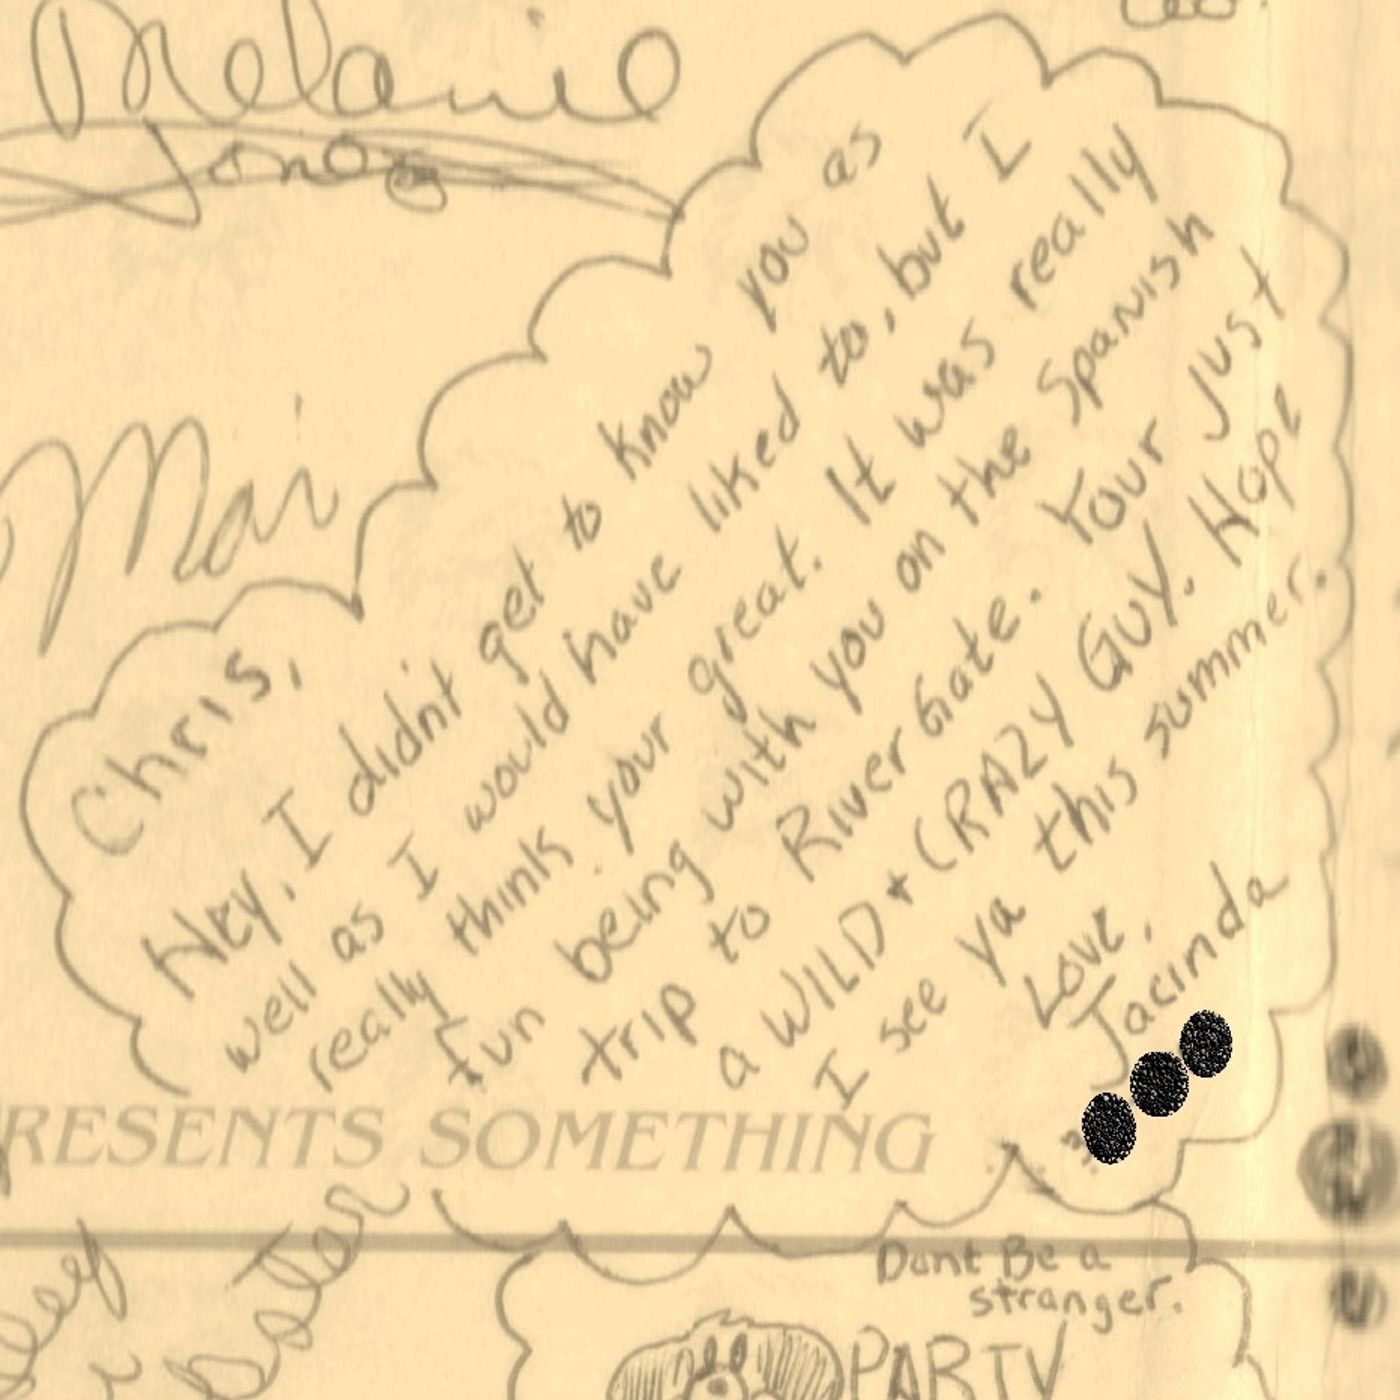 Melanie
Jones
Mari
Chris,
Hey, I didn't get to know you as
well as I would have liked to, but I
really think your great. It was really
fun being with you on the Spanish
trip to River Gate. Your Just
a WILD + CRAZY GUY. Hope
I see ya this summer.
Love,
Jacinda
RESENTS SOMETHING
Dont Be a
stranger.
PARTY